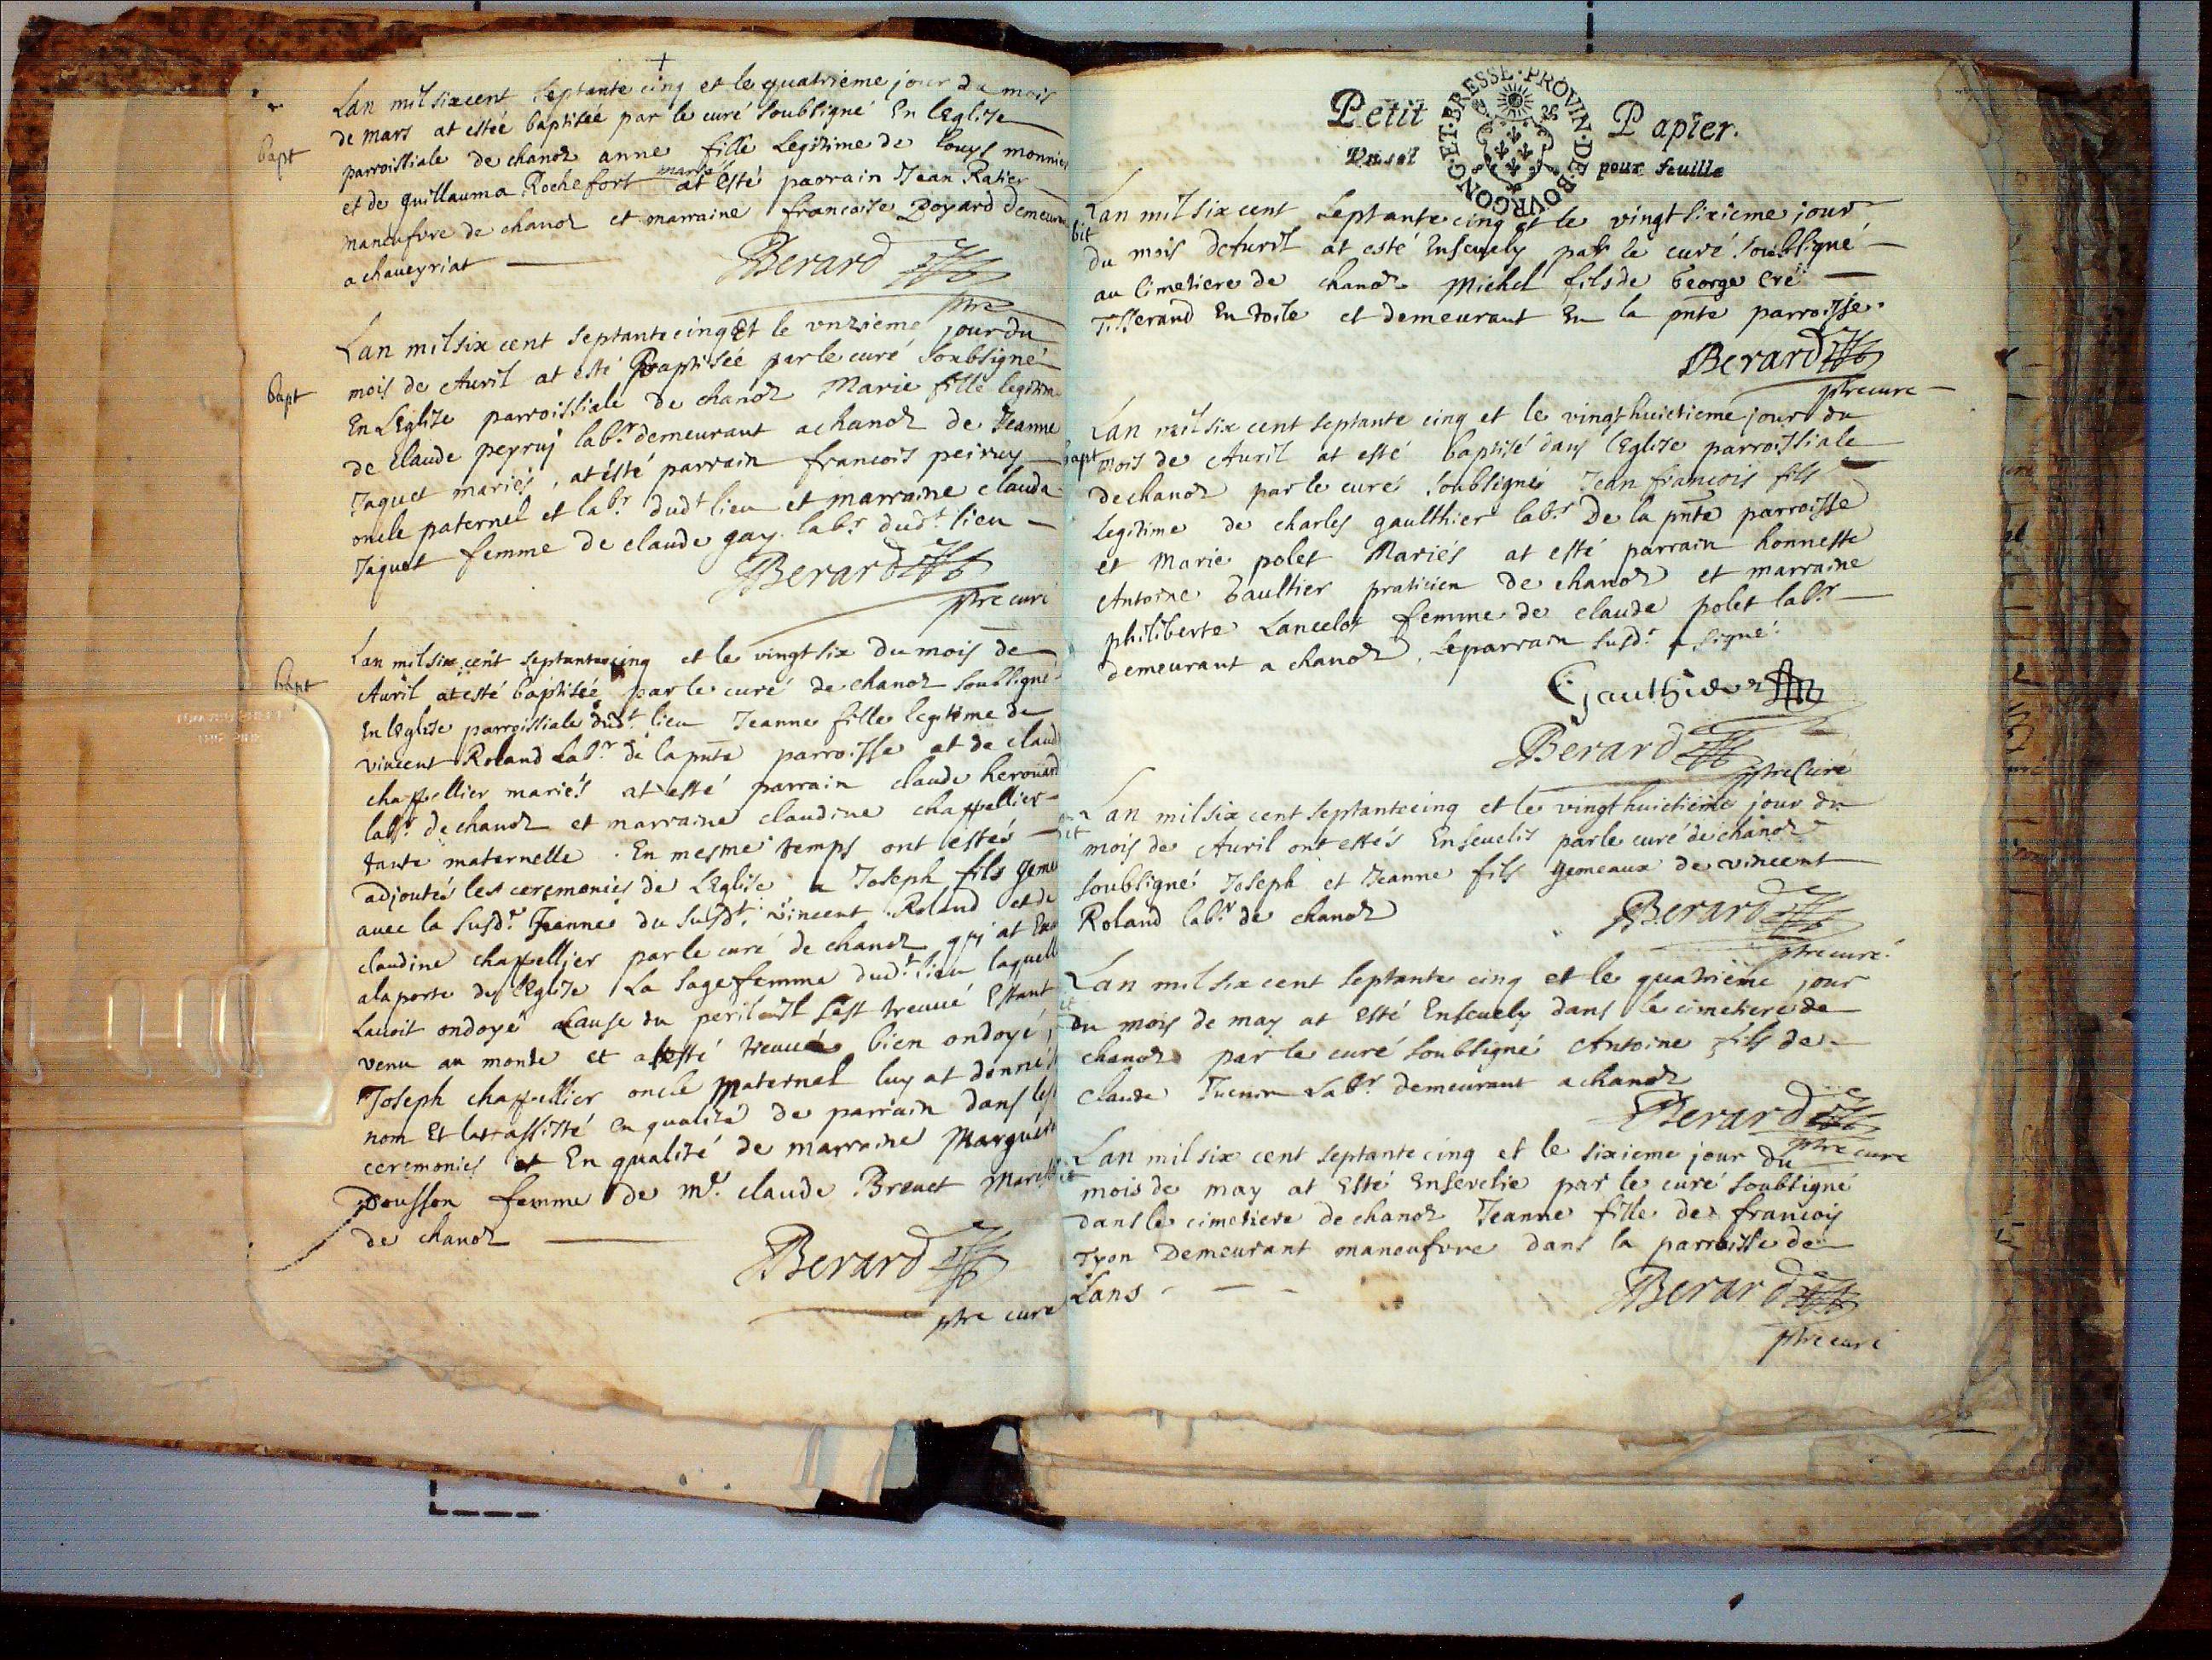 Lan mil six cent septante cinq et le quatrieme jour du mois
de mars at estéé baptiséé par le curé soubsigné En lEglise
bapt
parroissiale de chanoz anne fille Legitime de Louys monnier
et de guillauma Rochefort mariés at esté parrain Jean Ratier
maneufvre de chanoz et marraine francoise Boyard demeurant
a chaueyriat
Berard
ptre
Lan mil six cent septante cinq Et le vnzieme jour du
mois de Auril at esté Baptiséé par le curé soubsigné
bapt
En LEglise parroissiale de chanoz Marie fille legitime
de claude peyruj labr. demeurant a chanoz de Jeanne
Jaquet mariés, at ésté parrain francois peiruy
oncle paternel et labr. dudt lieu et marraine clauda
Jaquet femme de claude gay labr. dudt. lieu
Berard
ptre curé
Lan mil six cent septante cinq et le vingt six du mois de
bapt
Auril at esté baptiséé par le curé de chanoz soubsigné
En lEglise parroissiale dudt. lieu Jeanne fille legitime de
vincent Roland Labr. de la pnte parroisse at de claud
chappellier mariés at esté parrain claude herouard
labr. de chanoz et marraine claudine chappellier
tante maternelle. En mesme temps ont estés
adjoutés les ceremonies de LEglise a Joseph fils geme
auec la susdt. Jeanne du susdt. vincent Roland et de
claudine chappellier par le curé de chanoz, qui at Exa
a la porte de lEglise La sagefemme dudt. lieu laquelle
Lauoit ondoyé a Cause du peril ou il sest treuué Estant
venu au monde et at esté treuué bien ondoyé,
Joseph chappellier oncle maternel luy at donné
nom Et lat assisté en qualité de parrain dans les
ceremonies et En qualité de marraine Marguerite
Dousson femme de me. claude Breuet March
de chanoz
Berard
ptre curé
Petit Papier.
Vn sol pour feuille
BRESSE·PROVIN·DE·BOVRGONG·ET·
Lan mil six cent septante cinq et le vingt sixieme jour
du mois de Auril at esté Enseuely par le curé soubsigné
au Cimetiere de chanoz Michel fils de George Cré
Tisserand En toile et demeurant En la pnte parroisse.
Berard
ptre curé
Lan mil six cent septante cinq et le vingt huictieme jour du
bapt
mois de Auril at esté baptisé dans lEglise parroissiale
de chanoz par le curé soubsigné Jean francois fils
Legitime de charles gaulthier labr. De la pnte parroisse
et Marie polet Mariés at esté parrain honneste
Antoine Gaultier praticien de chanoz et marraine
philiberte Lancelot femme de claude polet labr.
demeurant a chanoz. Le parrain susdt. a signé.
Gauthier
Berard
ptre Curé
Lan mil six cent septante cinq et le vingt huictieme jour du
mois de Auril ont estés Enseuelis par le curé de chanoz
soubsigné Joseph et Jeanne fils gemeaux de vincent
Roland labr. de chanoz
Berard
ptre curé.
Lan mil six cent septante cinq et le quatrieme jour
du mois de may at esté Enseuely dans le cimetiere de
chanoz par le curé soubsigné Antoine fils de
Claude Labr. demeurant a chanoz
Berard
ptre curé
Lan mil six cent septante cinq et le sixieme jour du
mois de may at Esté Ensevelie par le curé soubsigné
dans le cimetiere de chanoz Jeanne fille de francois
Tyon Demeurant maneufvre dans la parroisse de
Lans
Berard
ptre curé